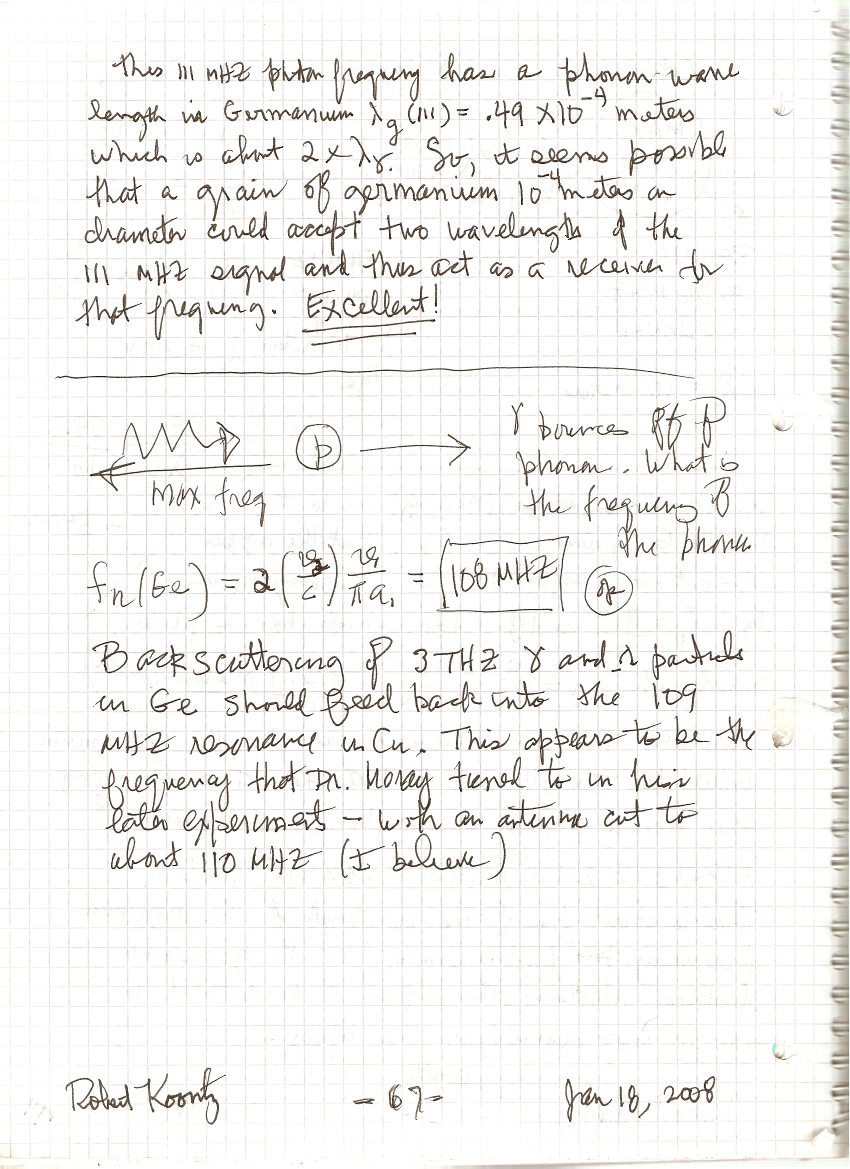 This 111 MHZ photon frequency has a phonon wave
length in Germanium λg (111) = .49 X10⁻⁴ meters
which is about 2 x λγ. So, it seems possible
that a grain of germanium 10⁻⁴ meters in
diameter could accept two wavelengths of the
111 MHZ signal and thus act as a receiver for
that frequency. Excellent!
γ bounces off P
Max freq
p
phonon. What is
the frequency of
the phonon
fn(Ge) = 2 (v₂/c) v₁/πa₁ = 108 MHZ
Backscattering of 3 THZ γ and particles
in Ge should feed back into the 109
MHZ resonance in Cu. This appears to be the
frequency that Dr. Moray tuned to in his
later experiments – with an antenna cut to
about 110 MHZ (I believe)
Robert Koontz - 67 - Jan 18, 2008